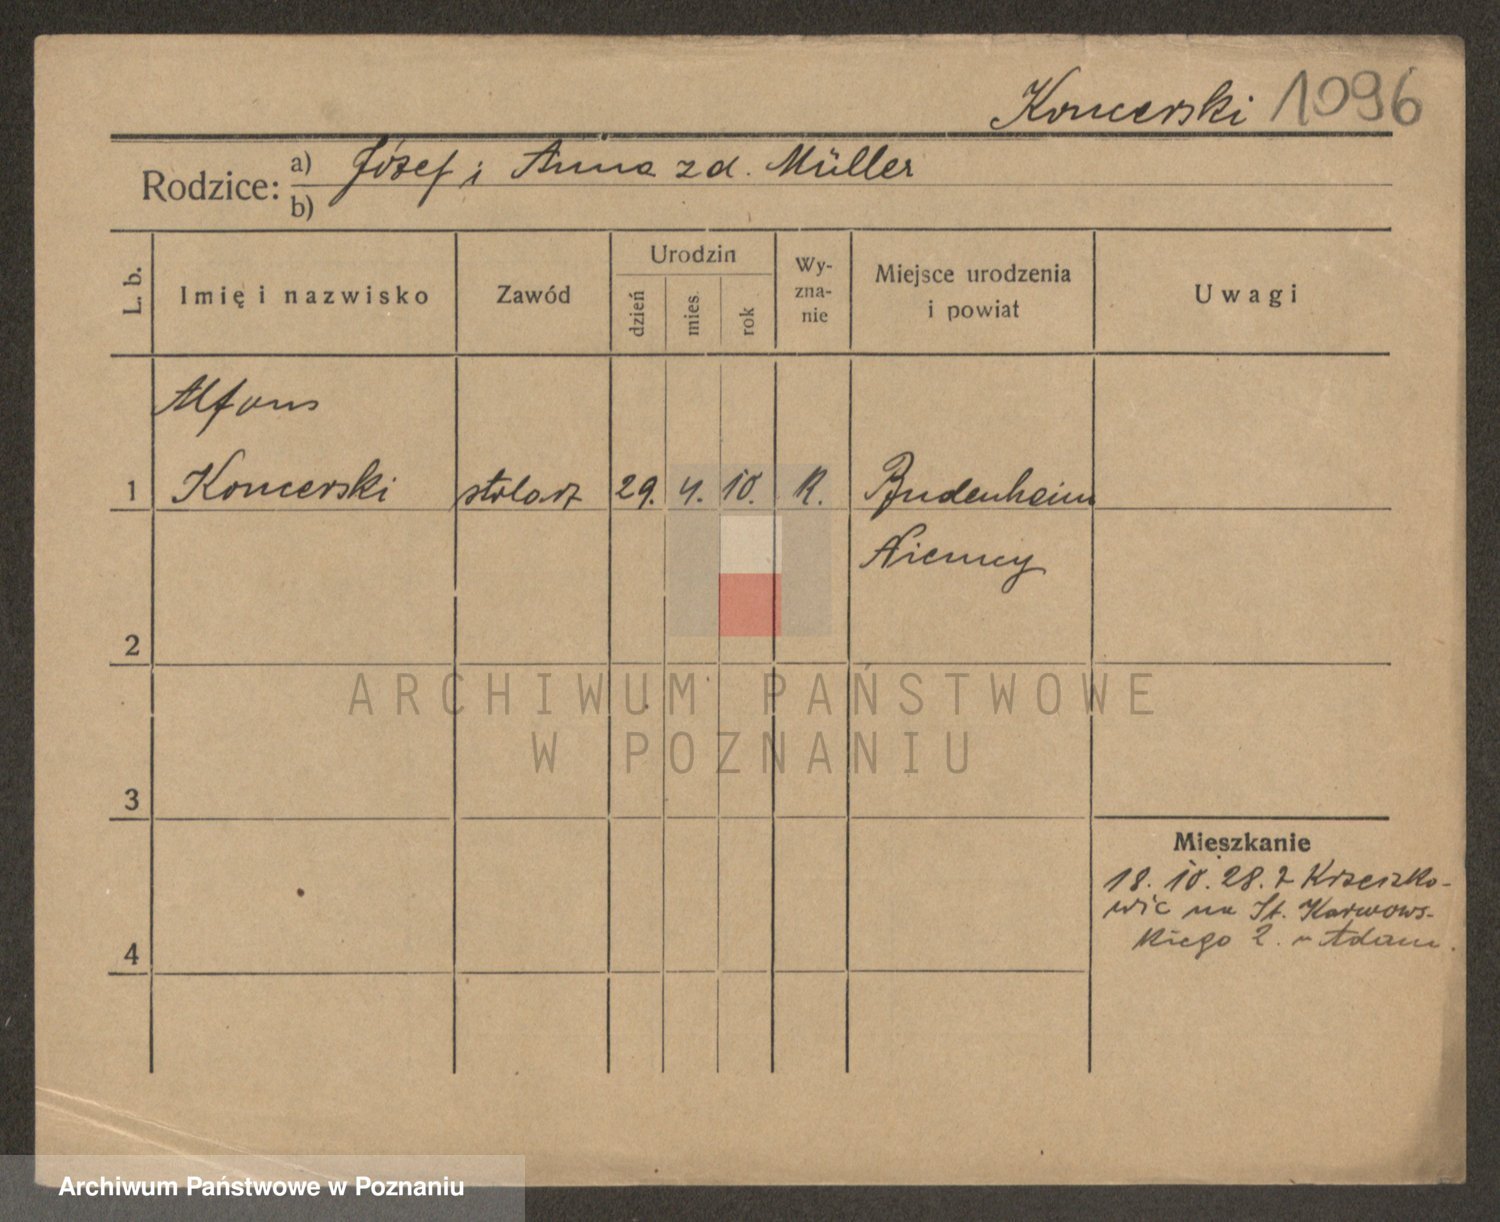 Koncerski 1096
Rodzice: a) Józef i Anna z d. Müller
b)
L. b.
Imię i nazwisko
Zawód
Urodzin
dzień
mies.
rok
Wy-
zna-
nie
Miejsce urodzenia
i powiat
Uwagi
Alfons
1 Koncerski stolarz 29. 4. 10. R. Budenheim
Niemcy
2
3
4
Mieszkanie
18. 10. 28. z Krzeszko-
wic na St. Karwows-
kiego 2. u Adam.
ARCHIWUM PAŃSTWOWE
W POZNANIU
Archiwum Państwowe w Poznaniu